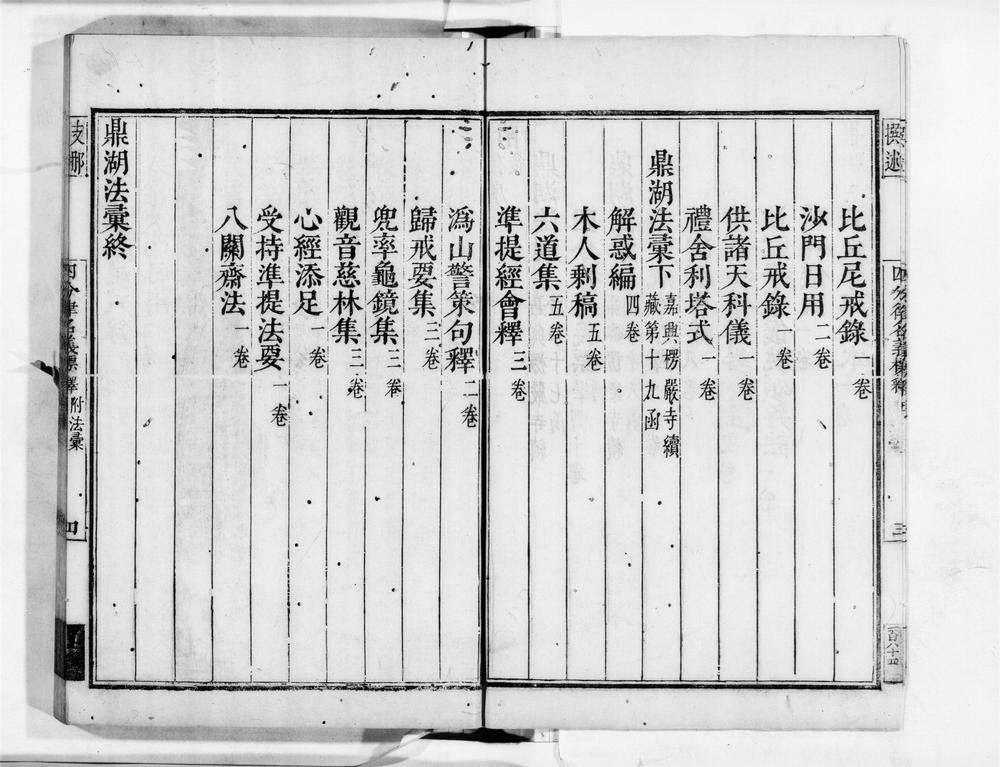 撰述
三
百八十四
比丘尼戒錄一卷
沙門日用二卷
比丘戒錄一卷
供諸天科儀一卷
禮舍利塔式一卷
鼎湖法彙下嘉興楞嚴寺續
藏第十九函
解惑編四卷
木人剩稿五卷
六道集五卷
準提經會釋三卷
溈山警策句釋二卷
歸戒要集三卷
兜率龜鏡集三卷
觀音慈林集三卷
心經添足一卷
受持準提法要一卷
八關齋法一卷
鼎湖法彙終
支那
四分律名義標釋附法彙
四